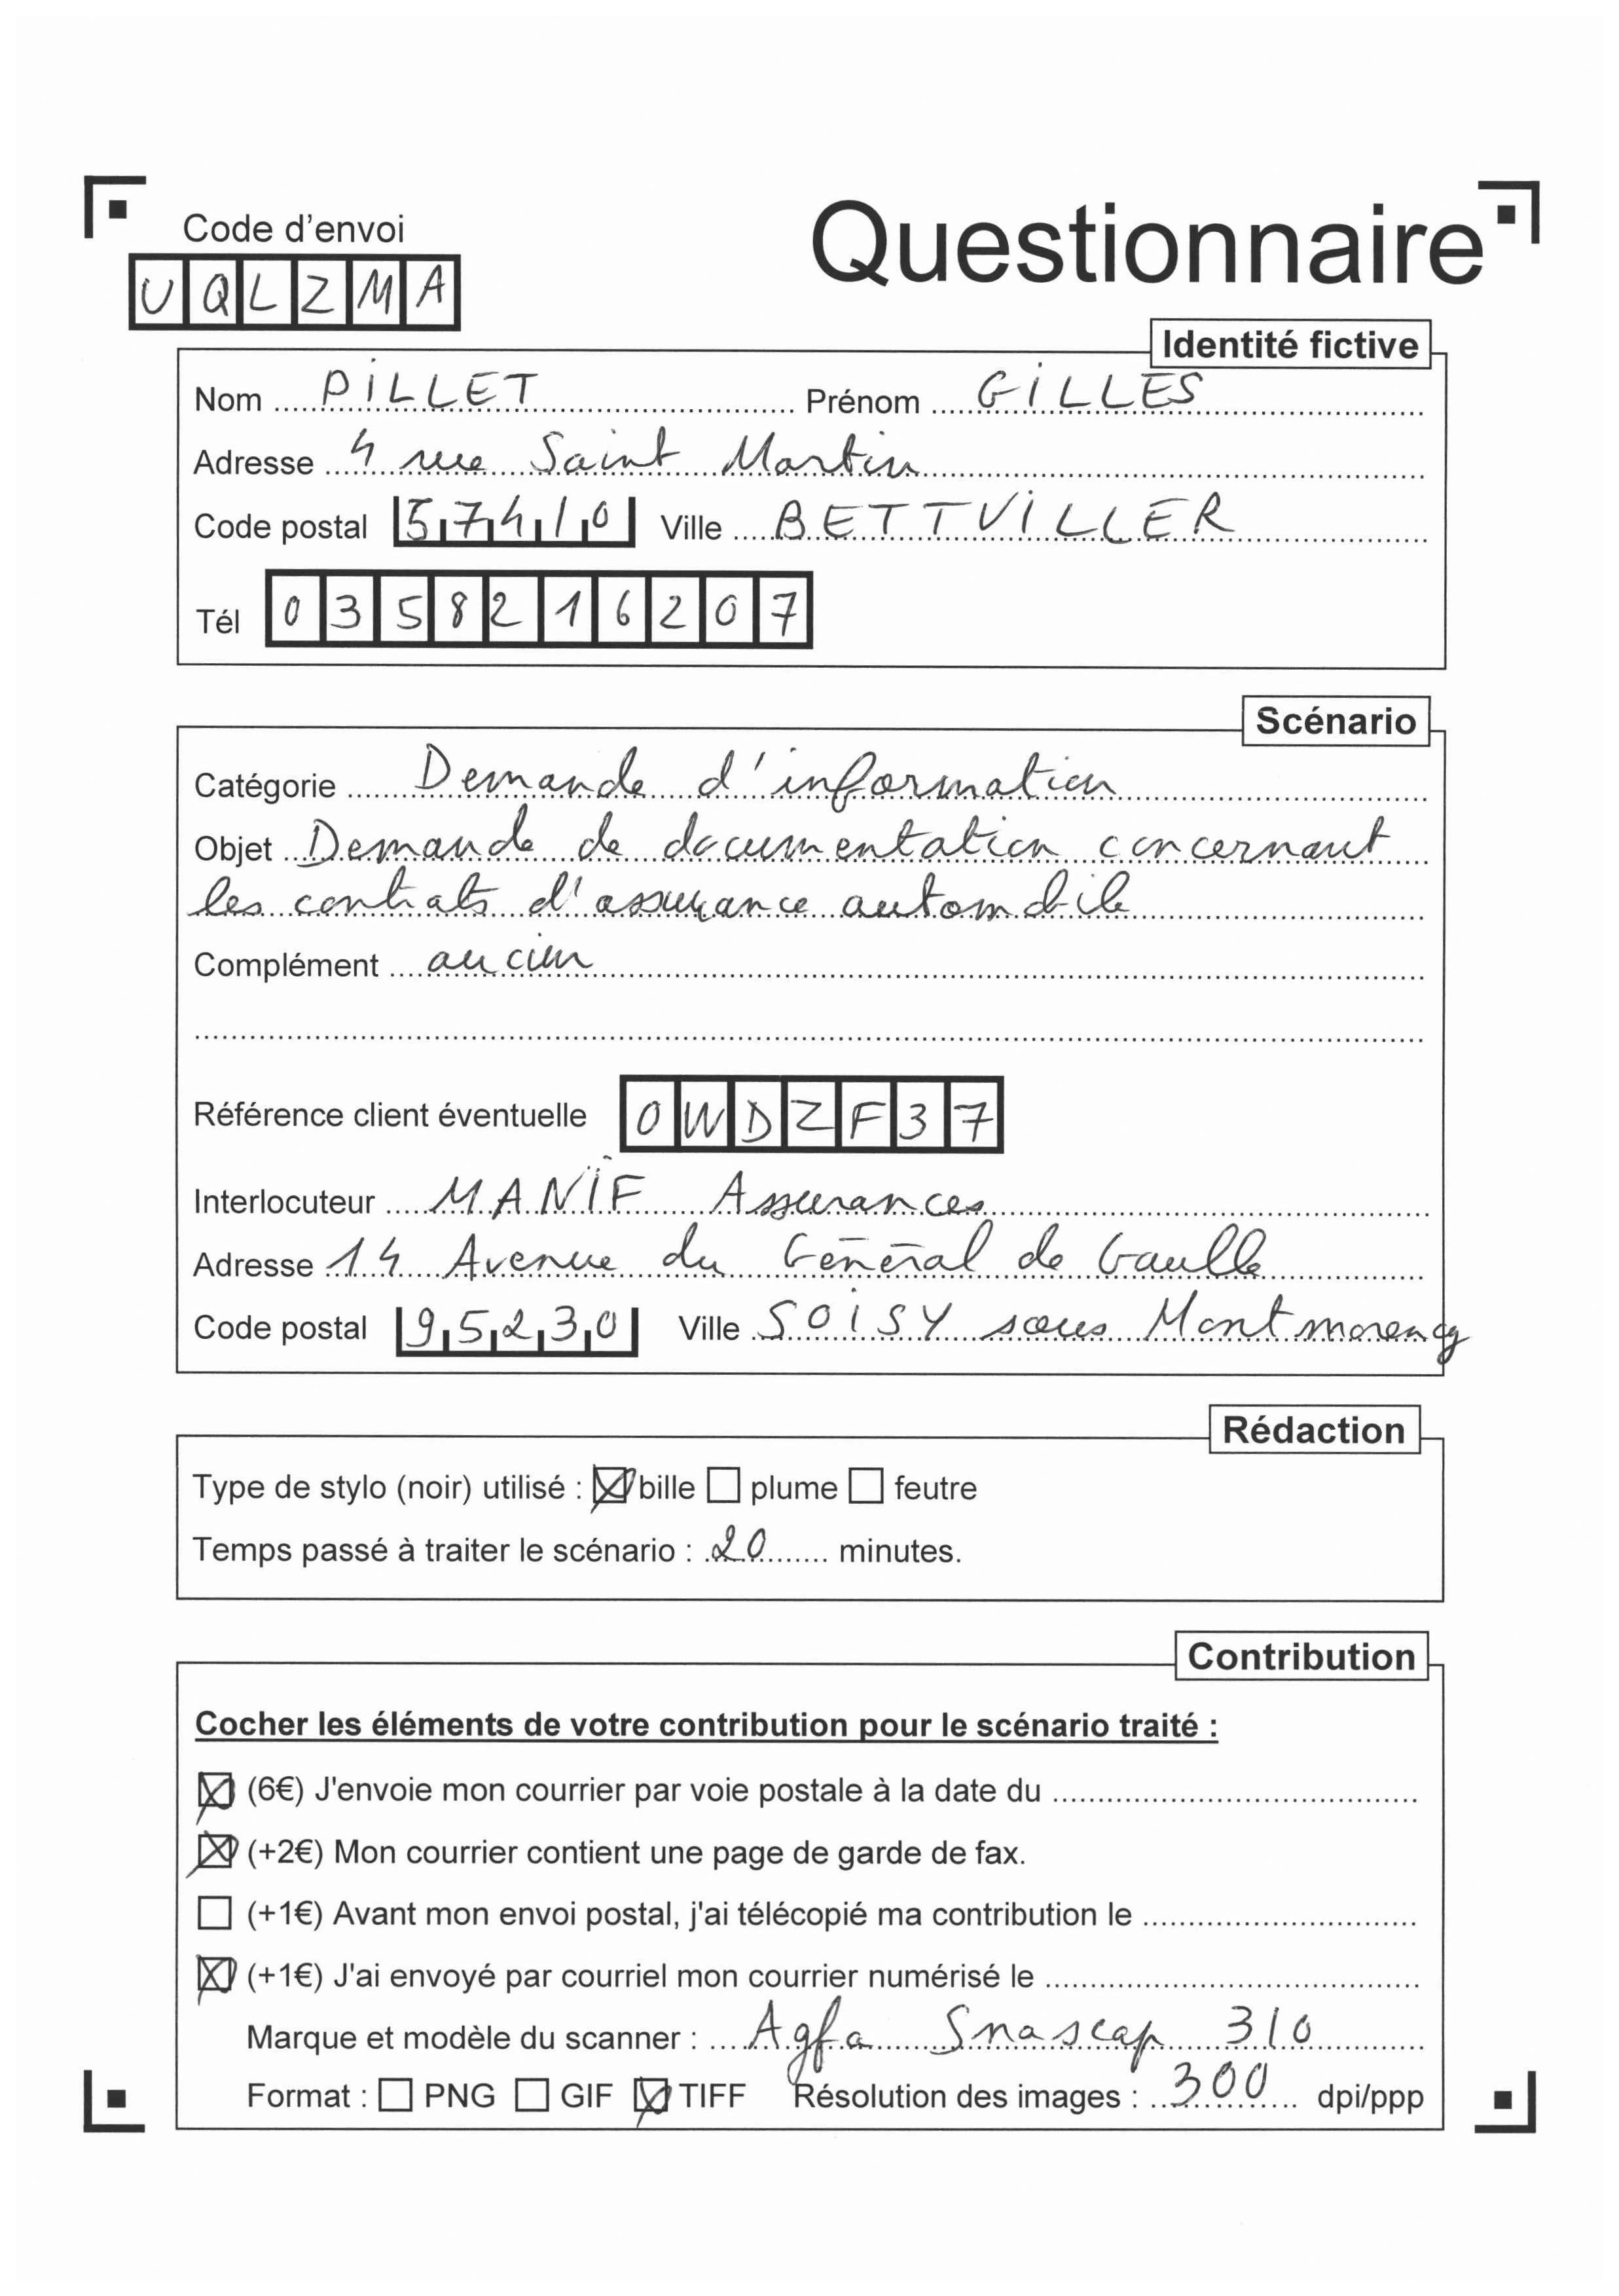 Code d'envoi
Questionnaire
UQLZMA
Identité fictive
Nom PILLET Prénom GILLES
Adresse 4 rue Saint Martin
Code postal 57410 Ville BETTVILLER
Tél 0358216207
Scénario
Catégorie Demande d'information
Objet Demande de documentation concernant
les contrats d'assurance automobile
Complément aucun
Référence client éventuelle OWDZF37
Interlocuteur MANIF Assurances
Adresse 14 Avenue du Général de Gaulle
Code postal 95230 Ville SOISY sous Montmorency
Rédaction
Type de stylo (noir) utilisé : ☒ bille ☐ plume ☐ feutre
Temps passé à traiter le scénario : 20 minutes.
Contribution
Cocher les éléments de votre contribution pour le scénario traité :
☒ (6€) J'envoie mon courrier par voie postale à la date du
☒ (+2€) Mon courrier contient une page de garde de fax.
☐ (+1€) Avant mon envoi postal, j'ai télécopié ma contribution le
☒ (+1€) J'ai envoyé par courriel mon courrier numérisé le
Marque et modèle du scanner : Agfa Snascap 310
Format : ☐ PNG ☐ GIF ☒ TIFF Résolution des images : 300 dpi/ppp